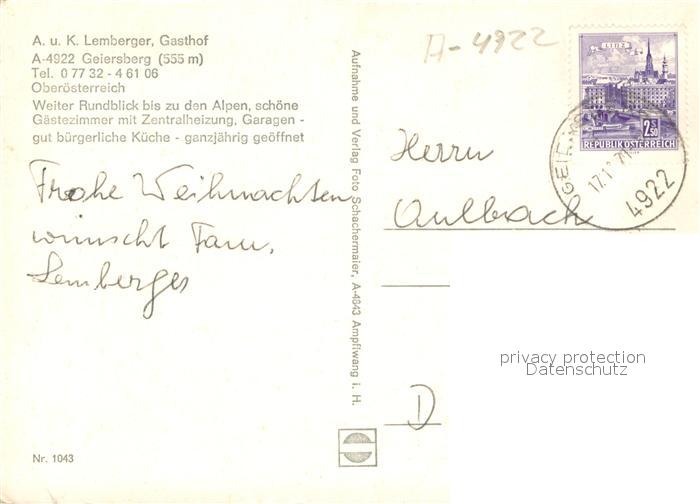 A. u. K. Lemberger, Gasthof
A-4922 Geiersberg (555 m)
Tel. 0 77 32 - 4 61 06
Oberösterreich
Weiter Rundblick bis zu den Alpen, schöne
Gästezimmer mit Zentralheizung, Garagen -
gut bürgerliche Küche - ganzjährig geöffnet
Frohe Weihnachten
wünscht Fam.
Lemberger
Nr. 1043
Aufnahme und Verlag Foto Schachermaier, A-4843 Ampflwang i. H.
A-4922
LINZ
2.50
REPUBLIK ÖSTERREICH
4922
Herrn
Aulbach
D
privacy protection
Datenschutz